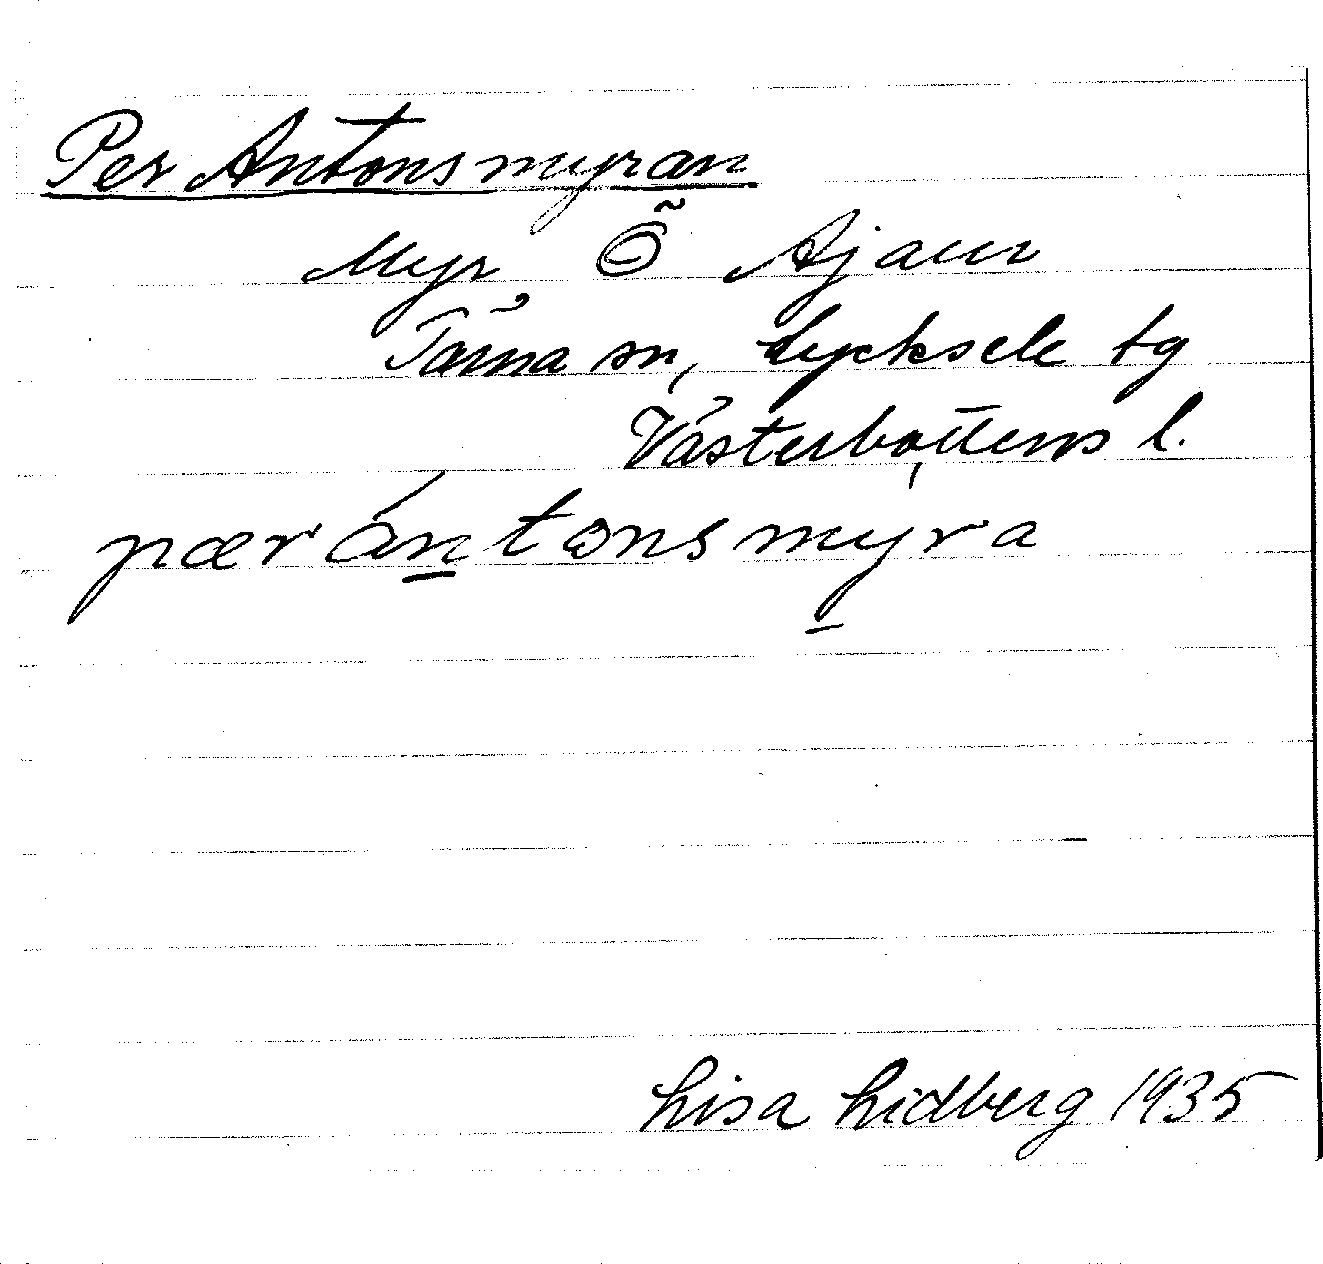 Per Antonsmyran
Myr Ö Ajaur
Tärna sn, Lycksele tg
Västerbottens l.
pær ántonsmyra
Lisa Lidberg 1935